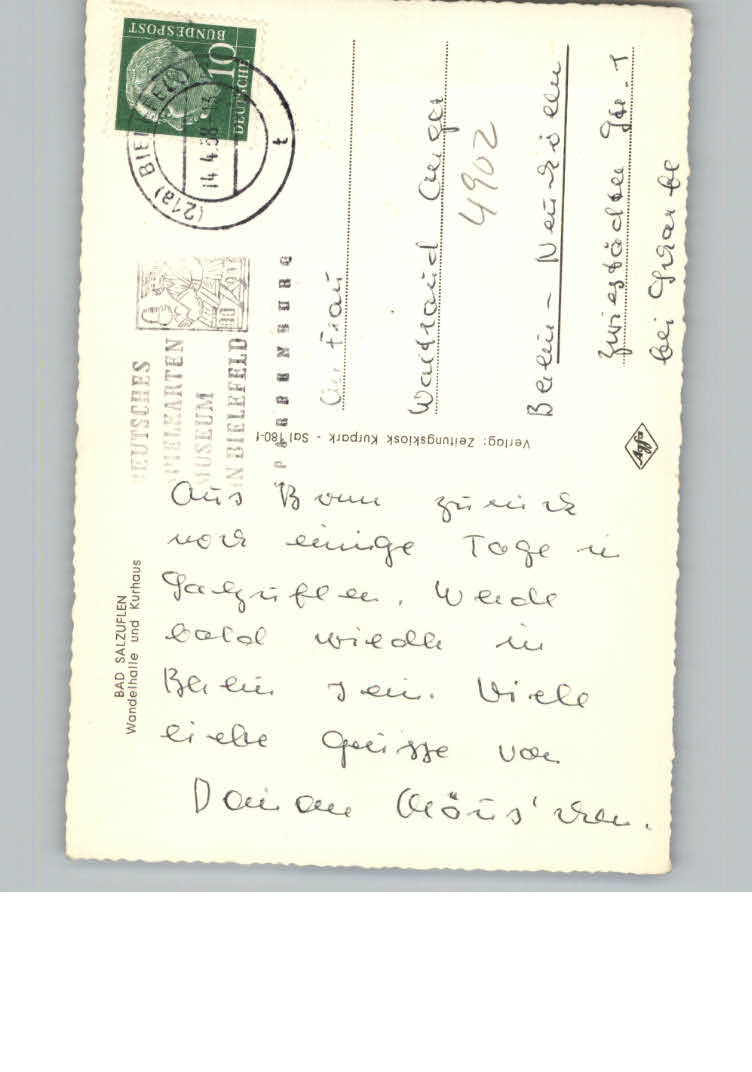 BUNDESPOST
DEUTSCHE
10
(21a) BIELEFELD
14.4.58
t
DEUTSCHES
SPIELKARTEN
MUSEUM
IN BIELEFELD
An Frau
Waltraud
4902
Berlin - Neukölln
bei
Verlag: Zeitungskiosk Kurpark - Sal 180-1
Agfa
BAD SALZUFLEN
Wandelhalle und Kurhaus
Aus Bonn zurück
noch einige Tage in
Salzuflen. Werde
bald wieder in
Berlin sein. Viele
liebe Grüsse von